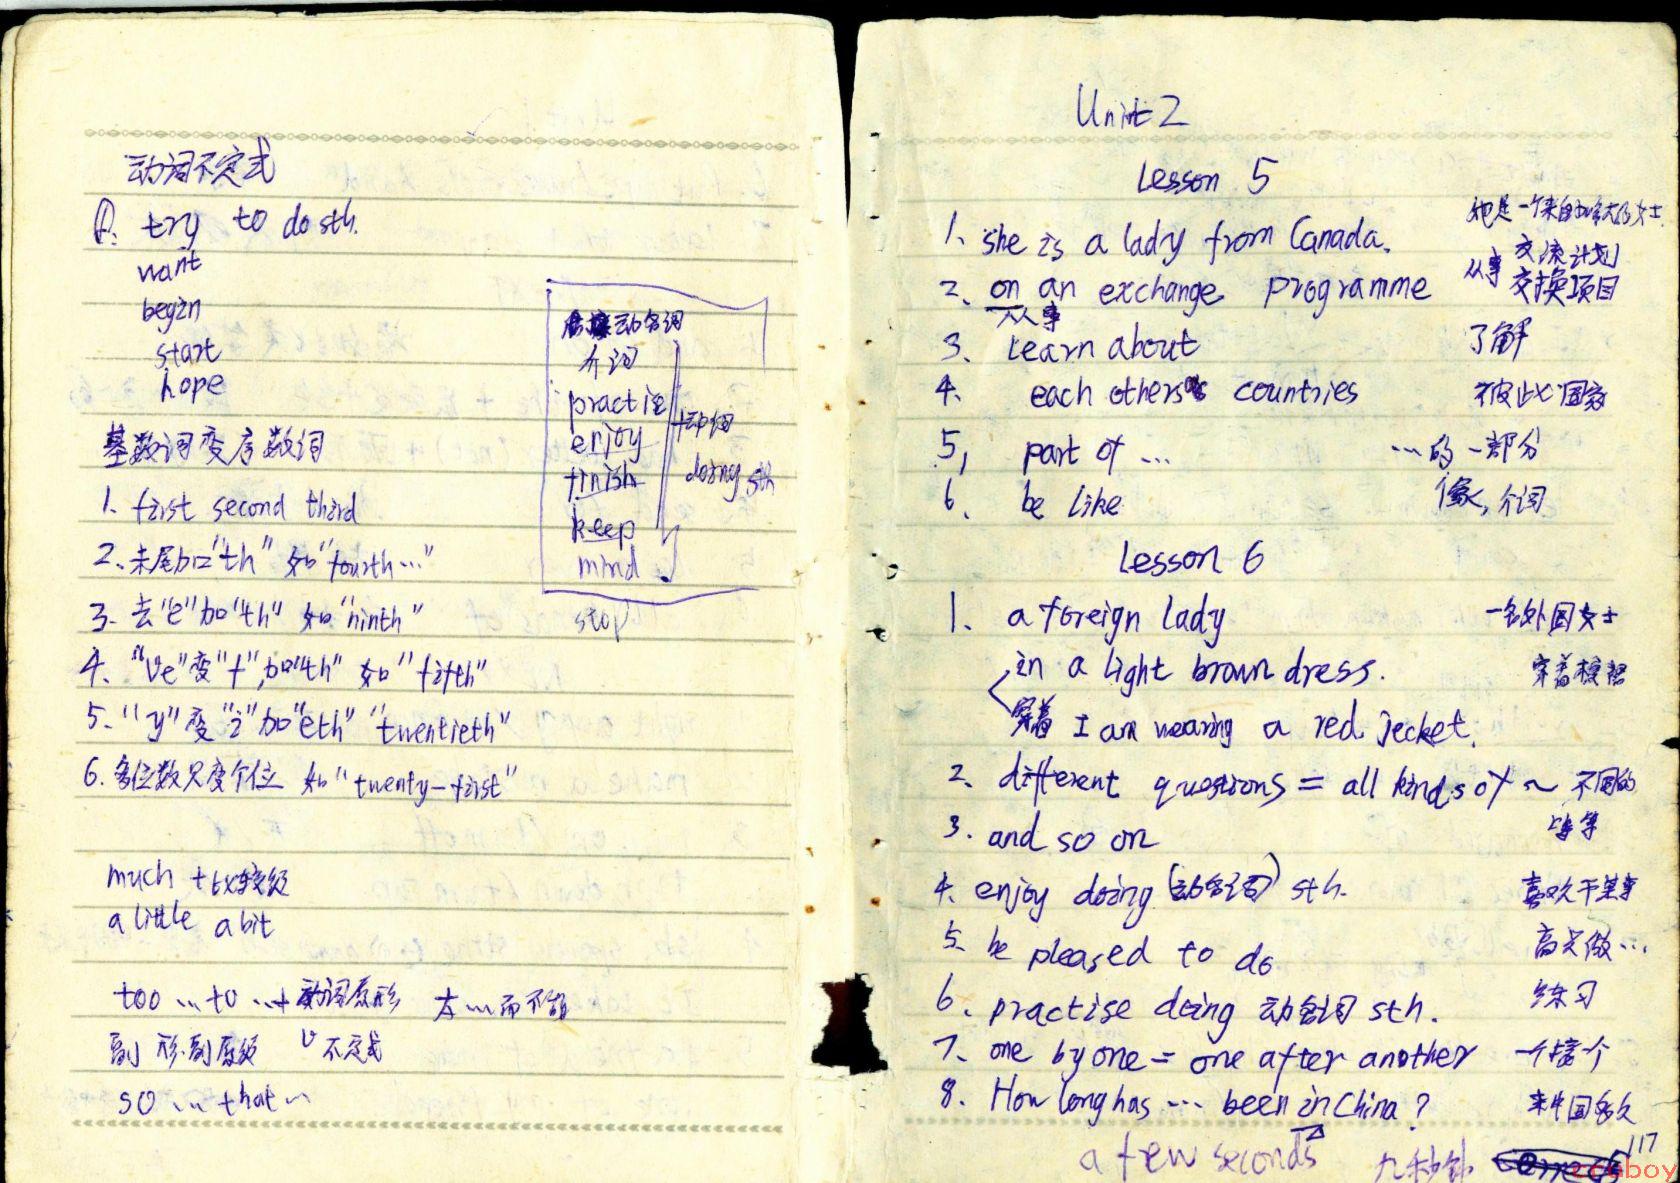 动词不定式
①. try to do sth.
want
begin
start
hope
基数词变序数词
1. first second third
2. 末尾加"th" 如"fourth…"
3. 去"e"加"th" 如"ninth"
4. "ve"变"f",加"th" 如"fifth"
5. "y"变"i"加"eth" "twentieth"
6. 多位数只变个位 如"twenty-first"
much +比较级
a little a bit
too … to …+ 动词原形 太…而不能
副 形.副原级 v不定式
so … that …
动名词
介词
practise
enjoy
finish
keep
mind
stop
+动词
doing sth
Unit 2
Lesson 5
1. she is a lady from Canada. 她是一个来自加拿大的女士.
2. on an exchange programme 从事 交流计划 交换项目
从事
3. Learn about 了解
4. each others countries 彼此 国家
5, part of … …的一部分
6. be like 像, 介词
Lesson 6
1. a foreign lady 一名外国女士
in a light brown dress. 穿着
穿着 I am wearing a red jecket.
2. different questions = all kinds of ~ 不同的
3. and so on 等等
4. enjoy doing (动名词) sth. 喜欢干某事
5. be pleased to do 高兴做…
6. practise doing 动名词 sth. 练习
7. one by one = one after another 一个接一个
8. How long has … been in China? 来中国多久
a few seconds 几秒钟
117